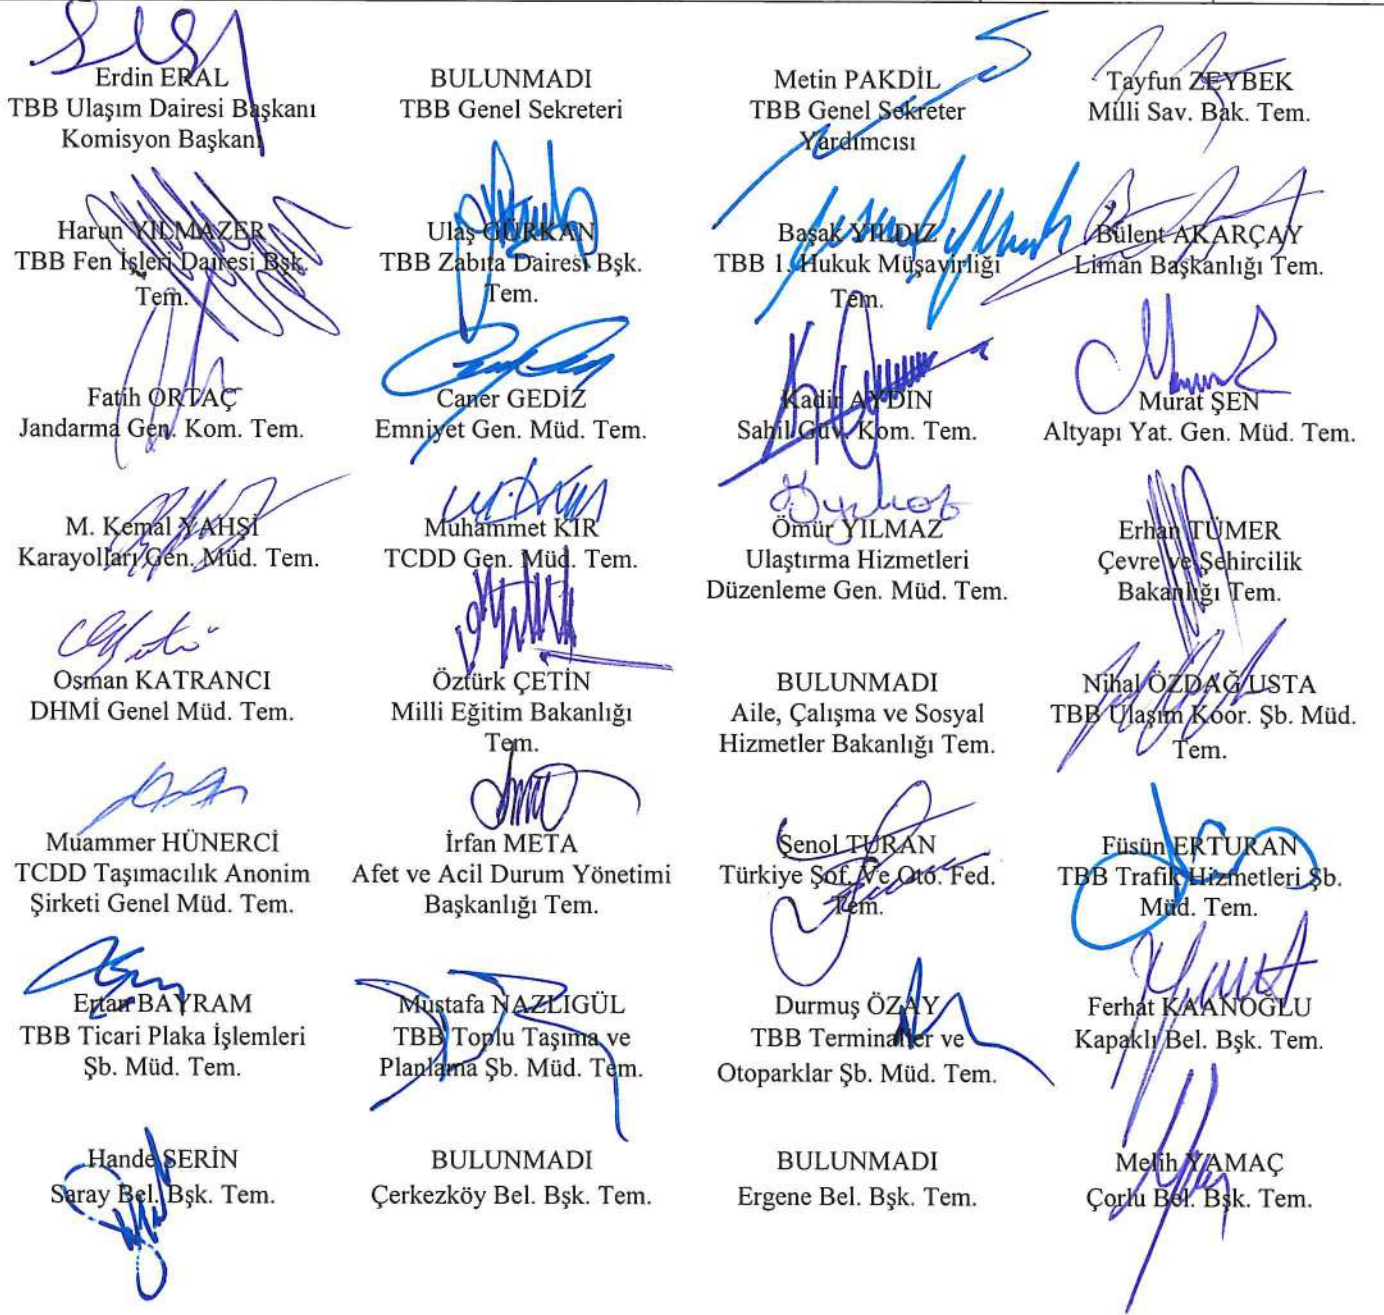 Erdin ERAL
TBB Ulaşım Dairesi Başkanı
Komisyon Başkanı
BULUNMADI
TBB Genel Sekreteri
Metin PAKDİL
TBB Genel Sekreter
Yardımcısı
Tayfun ZEYBEK
Milli Sav. Bak. Tem.
Harun YILMAZER
TBB Fen İşleri Dairesi Bşk.
Tem.
Ulaş GÜRKAN
TBB Zabıta Dairesi Bşk.
Tem.
Başak YILDIZ
TBB 1. Hukuk Müşavirliği
Tem.
Bülent AKARÇAY
Liman Başkanlığı Tem.
Fatih ORTAÇ
Jandarma Gen. Kom. Tem.
Caner GEDİZ
Emniyet Gen. Müd. Tem.
Kadir AYDIN
Sahil Güv. Kom. Tem.
Murat ŞEN
Altyapı Yat. Gen. Müd. Tem.
M. Kemal YAHŞİ
Karayolları Gen. Müd. Tem.
Muhammet KIR
TCDD Gen. Müd. Tem.
Ömür YILMAZ
Ulaştırma Hizmetleri
Düzenleme Gen. Müd. Tem.
Erhan TÜMER
Çevre ve Şehircilik
Bakanlığı Tem.
Osman KATRANCI
DHMİ Genel Müd. Tem.
Öztürk ÇETİN
Milli Eğitim Bakanlığı
Tem.
BULUNMADI
Aile, Çalışma ve Sosyal
Hizmetler Bakanlığı Tem.
Nihal ÖZDAĞ USTA
TBB Ulaşım Koor. Şb. Müd.
Tem.
Muammer HÜNERCİ
TCDD Taşımacılık Anonim
Şirketi Genel Müd. Tem.
İrfan META
Afet ve Acil Durum Yönetimi
Başkanlığı Tem.
Şenol TURAN
Türkiye Şof. Ve Oto. Fed.
Tem.
Füsün ERTURAN
TBB Trafik Hizmetleri Şb.
Müd. Tem.
Ertan BAYRAM
TBB Ticari Plaka İşlemleri
Şb. Müd. Tem.
Mustafa NAZLIGÜL
TBB Toplu Taşıma ve
Planlama Şb. Müd. Tem.
Durmuş ÖZAY
TBB Terminaller ve
Otoparklar Şb. Müd. Tem.
Ferhat KAANOĞLU
Kapaklı Bel. Bşk. Tem.
Hande SERİN
Saray Bel. Bşk. Tem.
BULUNMADI
Çerkezköy Bel. Bşk. Tem.
BULUNMADI
Ergene Bel. Bşk. Tem.
Melih YAMAÇ
Çorlu Bel. Bşk. Tem.